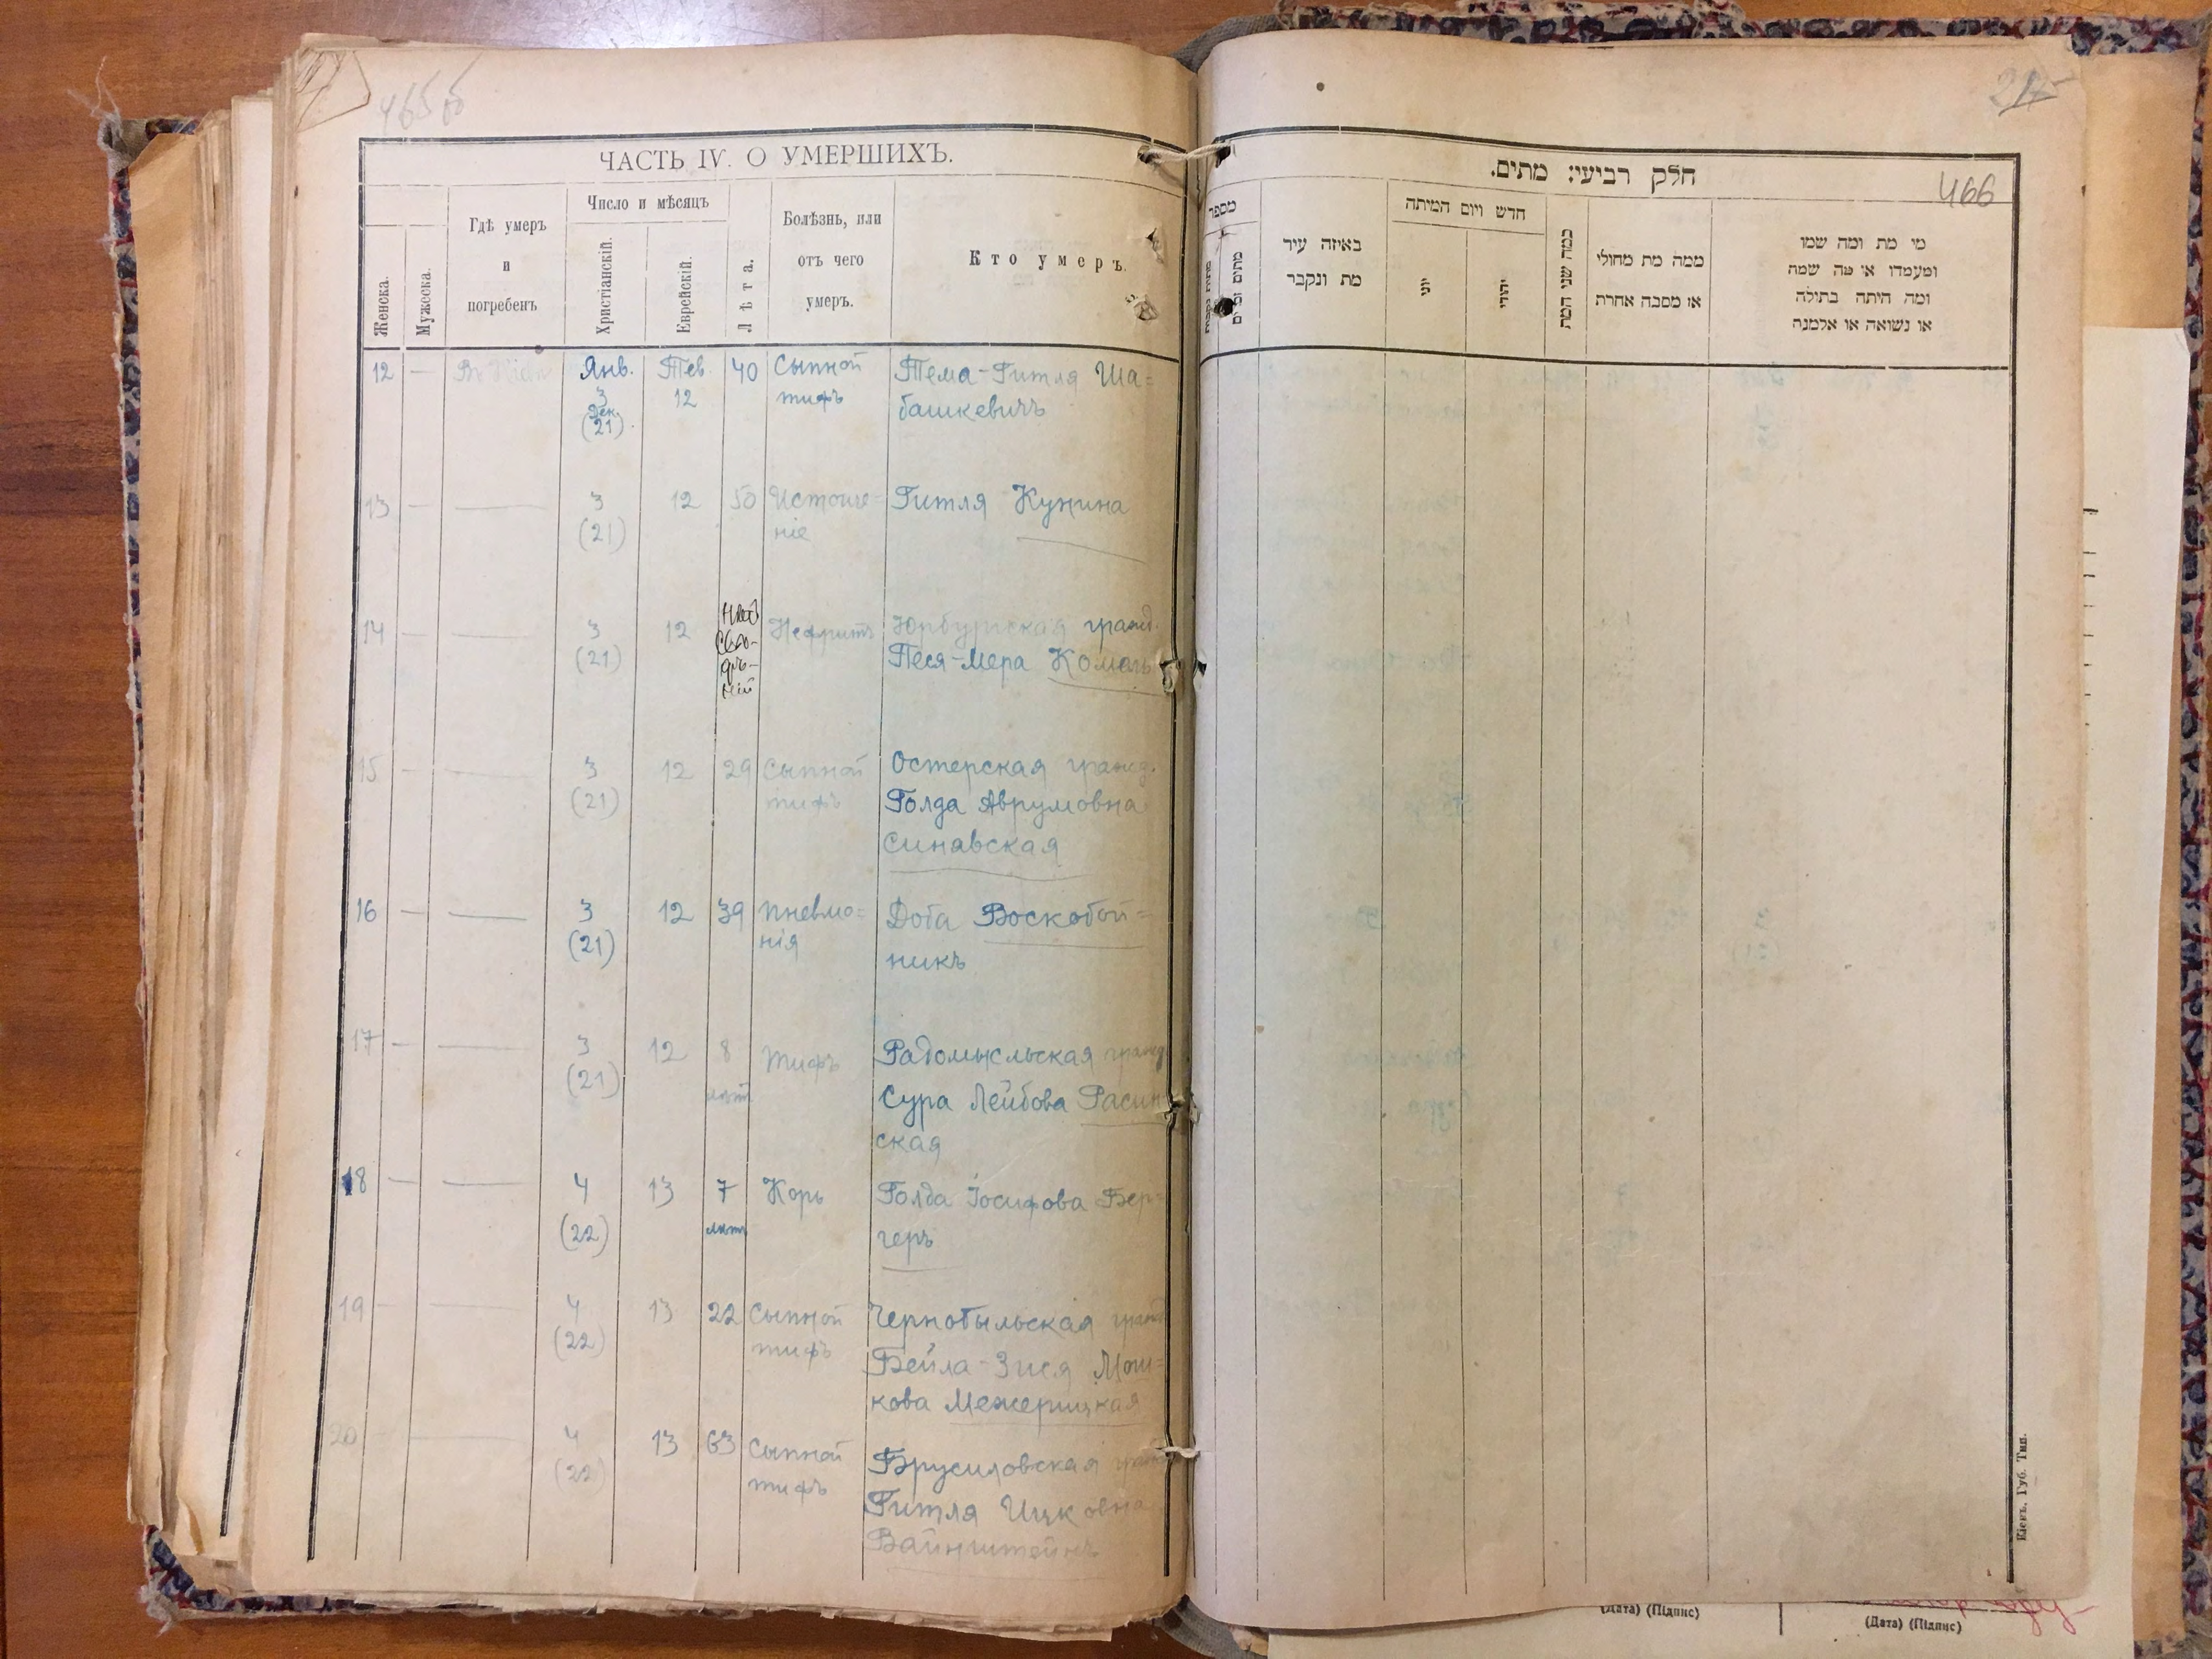 465 об
ЧАСТЬ IV. О УМЕРШИХЪ.
Женска.
Мужеска.
Гдѣ умеръ
и
погребенъ
Число и мѣсяцъ
Христіанскій.
Еврейскій.
Лѣта.
Болѣзнь, или
отъ чего
умеръ.
Кто умеръ.
12 — Янв. Тев. 40 Сыпной Тема-Гитля Ша=
3 12 тифъ башкевичъ
Дек.
(21).
13 — — 3 12 50 Истоще= Гитля Кунина
(21) ніе
14 — — 3 12 Нефритъ Юрбургская гражд.
(21) Песя-Мера
15 — — 3 12 29 Сыпной Остерская гражд.
(21) тифъ Голда Аврумовна
Синявская
16 — — 3 12 39 пневмо= Доба Воскобой=
(21) нія никъ
17 — — 3 12 8 Тифъ Радомысльская гражд
(21) лѣт Сура Лейбова Расин
ская
18 — — 4 13 7 Корь Голда Іосифова Бер=
(22) лѣтъ геръ
19 — — 4 13 22 Сыпной Чернобыльская гражд
(22) тифъ Бейла-Зися Мош=
кова Межерицкая
20 — 4 13 63 Сыпной Брусиловская гражд
(22) тифъ Гитля Ицковна
Вайнштейнъ
466
חלק רביעי: מתים.
מספר
באיזה עיר
מת ונקבר
חדש ויום המיתה
יוני
יהודי
כמה שני המת
ממה מת מחולי
או מסבה אחרת
מי מת ומה שמו
ומעמדו או מה שמה
ומה היתה בתולה
או נשואה או אלמנה
Кіевъ, Губ. Тип.
(Дата) (Підпис)
(Дата) (Підпис)